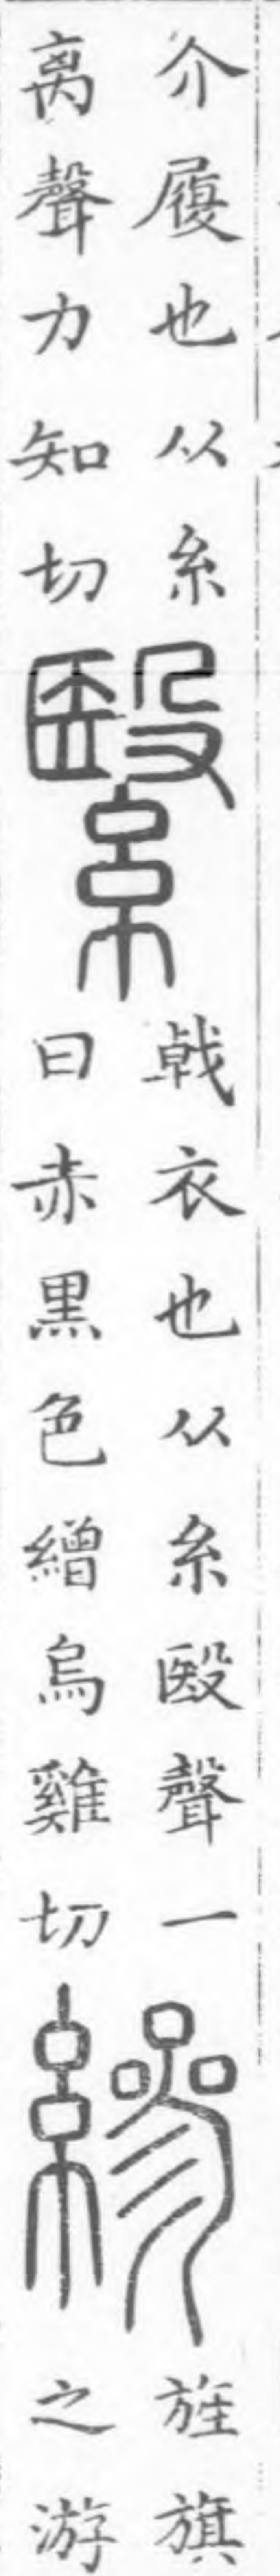 介履也从糸
离聲力知切
繄
戟衣也从糸殹聲一
曰赤黒色繒烏雞切
縿
旌旗
之游